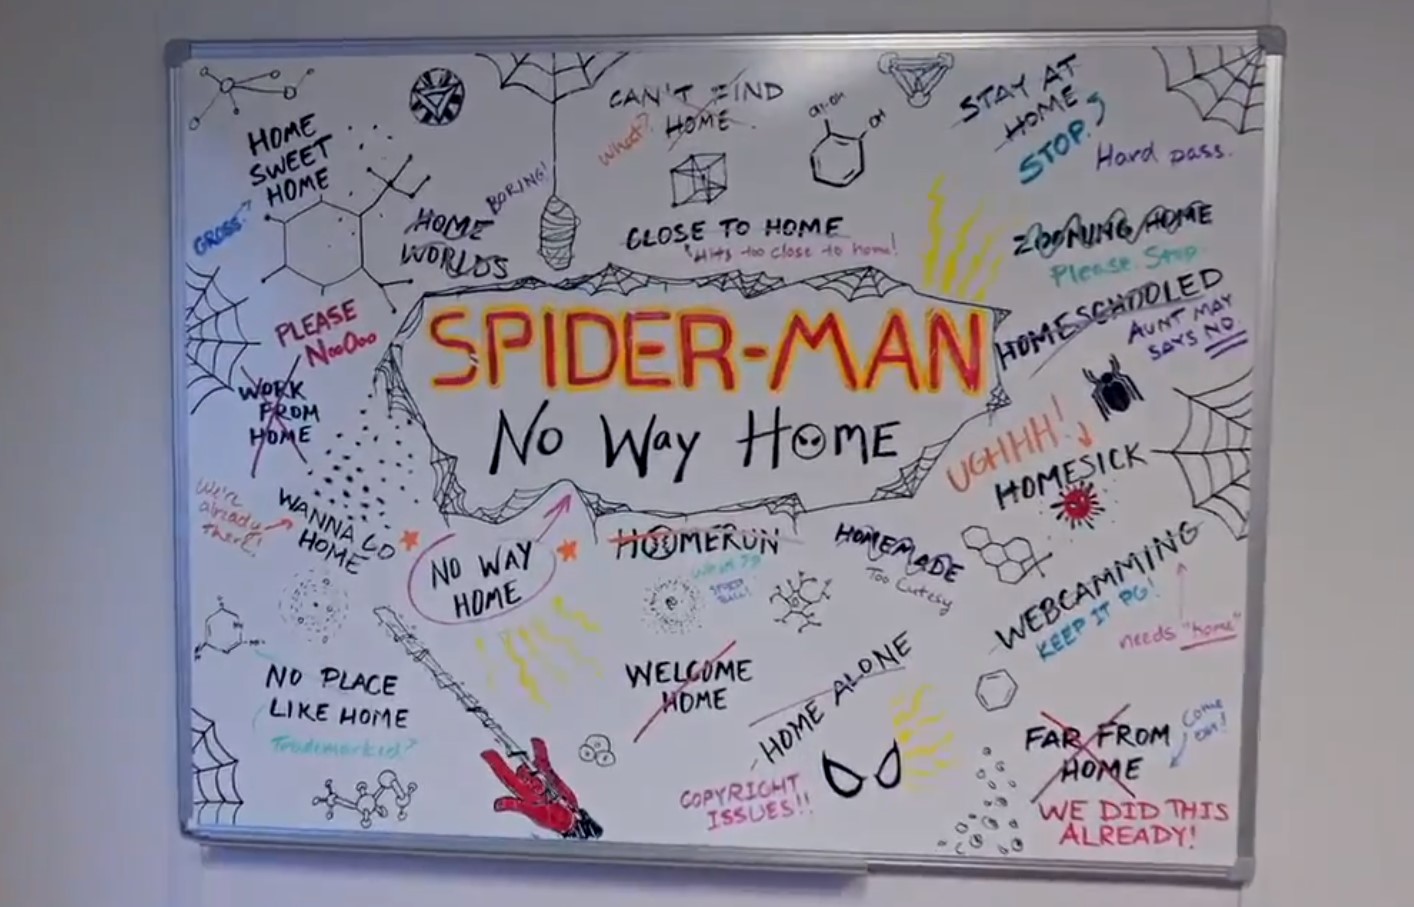 HOME
SWEET
HOME
GROSS
HOME
WORLDS
BORING!
CAN'T FIND
HOME
What?
CH-OH
OH
CLOSE TO HOME
Hits too close to home!
STAY AT
HOME
STOP.
Hard pass.
ZOOMING HOME
Please Stop
HOMESCHOOLED
AUNT MAY
SAYS NO.
PLEASE
NooOoo
WORK
FROM
HOME
SPIDER-MAN
No Way HOME
UGHHH!
HOMESICK
We're
already
there!
WANNA GO
HOME
NO WAY
HOME
HOOMERUN
HOMEMADE
Too Cutesy
WEBCAMMING
KEEP IT PG!
needs "home"
NO PLACE
LIKE HOME
Trademarked?
WELCOME
HOME
HOME ALONE
COPYRIGHT
ISSUES!!
FAR FROM
HOME
Come
on!
WE DID THIS
ALREADY!